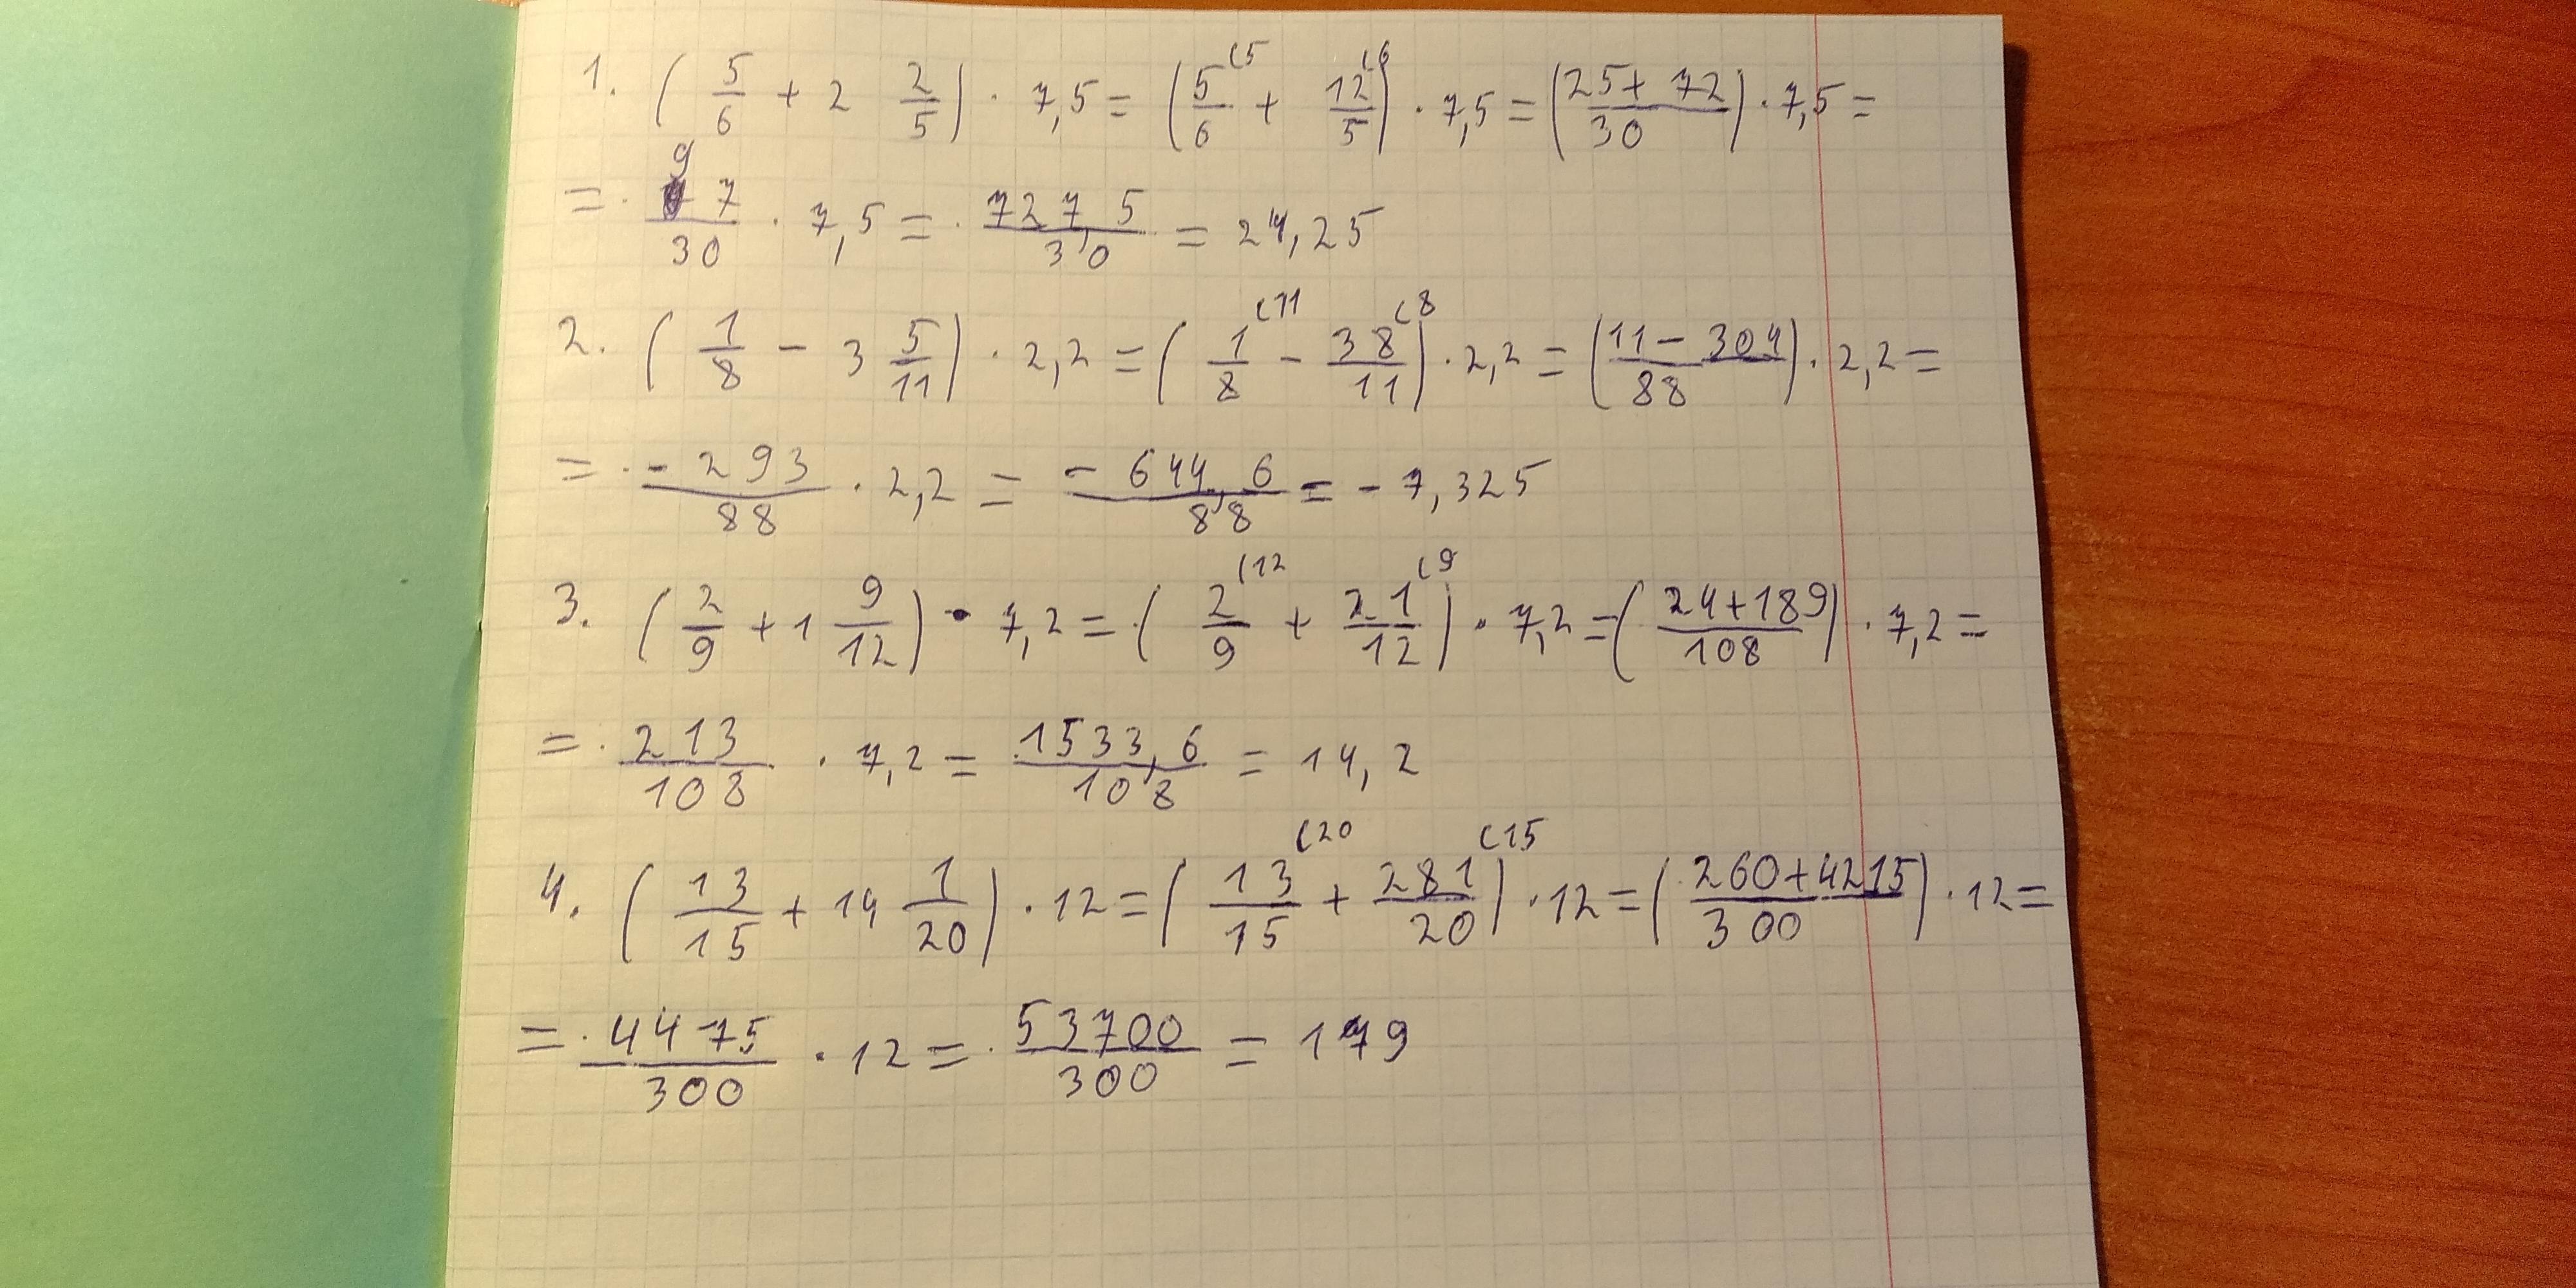 1. ( 5/6 + 2 2/5 ) · 7,5 = ( 5/6 (5 + 12/5 (6 ) · 7,5 = ( 25 + 72 / 30 ) · 7,5 =
= 97/30 · 7,5 = 727,5/30 = 24,25
2. ( 1/8 - 3 5/11 ) · 2,2 = ( 1/8 (11 - 38/11 (8 ) · 2,2 = ( 11 - 304 / 88 ) · 2,2 =
= -293/88 · 2,2 = -644,6/88 = -7,325
3. ( 2/9 + 1 9/12 ) · 7,2 = ( 2/9 (12 + 21/12 (9 ) · 7,2 = ( 24 + 189 / 108 ) · 7,2 =
= 213/108 · 7,2 = 1533,6/108 = 14,2
4. ( 13/15 + 14 1/20 ) · 12 = ( 13/15 (20 + 281/20 (15 ) · 12 = ( 260 + 4215 / 300 ) · 12 =
= 4475/300 · 12 = 53700/300 = 179